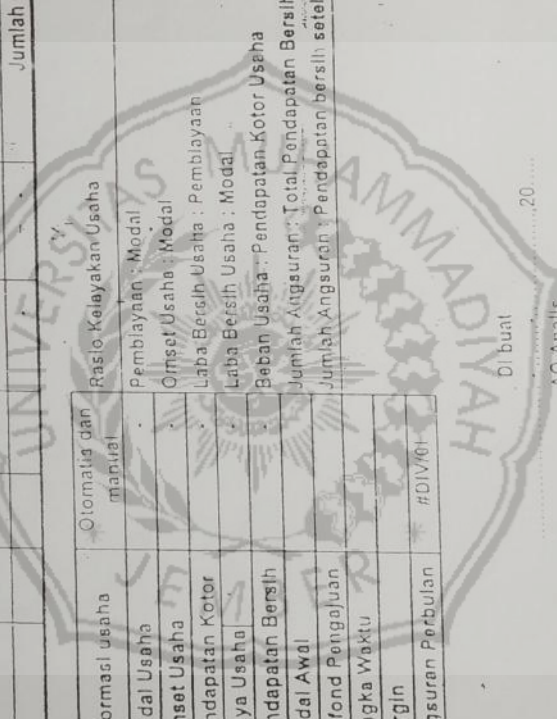 Jumlah
ormasi usaha
Otomatis dan manual
Rasio Kelayakan Usaha
dal Usaha
Pembiayaan : Modal
nset Usaha
Omset Usaha : Modal
ndapatan Kotor
Laba Bersih Usaha : Pembiayaan
ya Usaha
Laba Bersih Usaha : Modal
ndapatan Bersih
Beban Usaha : Pendapatan Kotor Usaha
dal Awal
Jumlah Angsuran : Total Pendapatan Bersih
fond Pengajuan
Jumlah Angsuran : Pendapatan bersih setel
ngka Waktu
gin
gsuran Perbulan
#DIV/0!
Di buat
20
UNIVERSITAS MUHAMMADIYAH
JEMBER